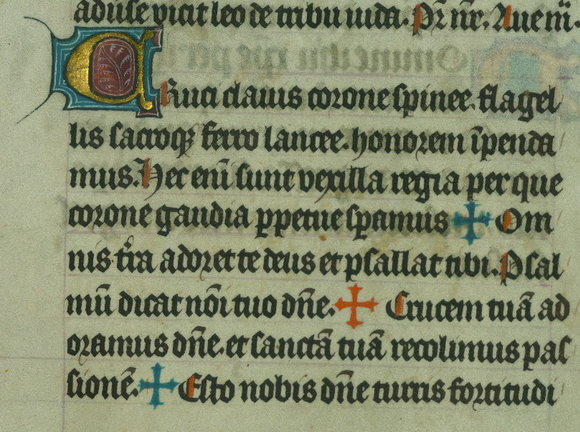 aduſe vicit leo de tribu iuda. Pr̄ nr̄. Aue m̄.
Cruci clauis corone ſpinee. flagel
lis ſacroqꝫ ferro lancee. honorem īpenda
mus. Hec enī ſunt vexilla regia per que
corone gaudia ꝑpetue ſꝑamus ✠ Om
nis tr̄a adoret te deus et pſallat tibi. Pſal
mū dicat nōi tuo dn̄e. ✠ Crucem tuā ad
oramus dn̄e. et ſanctā tuā recolimus paſ
ſionē. ✠ Eſto nobis dn̄e turris fortitudi